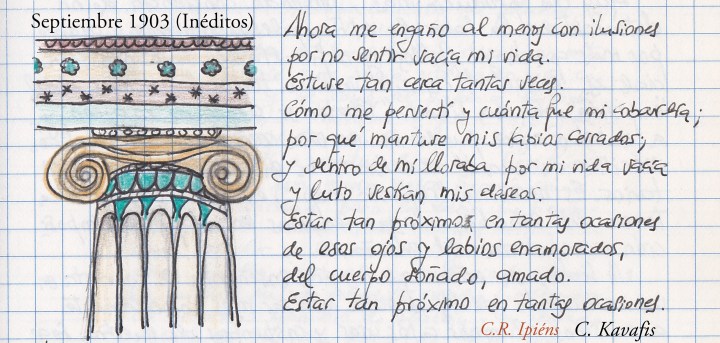 Septiembre 1903 (Inéditos)
Ahora me engaño al menos con ilusiones
por no sentir vacía mi vida.
Estuve tan cerca tantas veces.
Cómo me pervertí y cuánta fue mi cobardía;
por qué mantuve mis labios cerrados;
y dentro de mí lloraba por mi vida vacía
y luto vestían mis deseos.
Estar tan próximo en tantas ocasiones
de esos ojos y labios enamorados,
del cuerpo soñado, amado.
Estar tan próximo en tantas ocasiones.
C.R. Ipiéns C. Kavafis